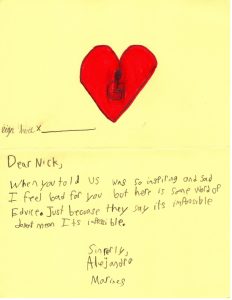 sign here x
Dear Nick,
When you told us was so inspiring and sad
I feel bad for you but here is some word of
Edvice. Just because they say its impossible
doest mean Its impossible.
Sincerly,
Alejandro
Marines